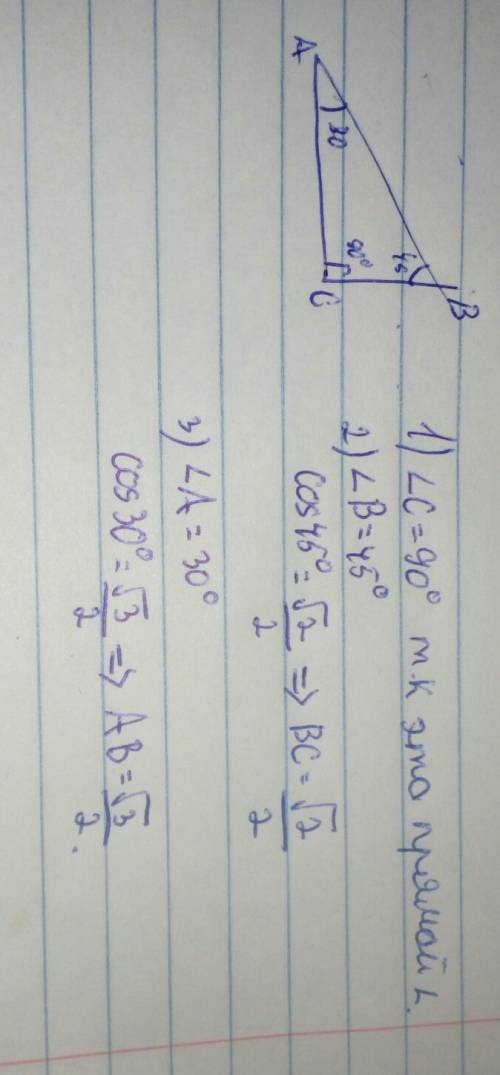 A
30
90°
45
B
C
1) ∠C = 90° т.к это прямой ∠.
2) ∠B = 45°
cos45° = √2/2 => BC = √2/2
3) ∠A = 30°
cos30° = √3/2 => AB = √3/2.